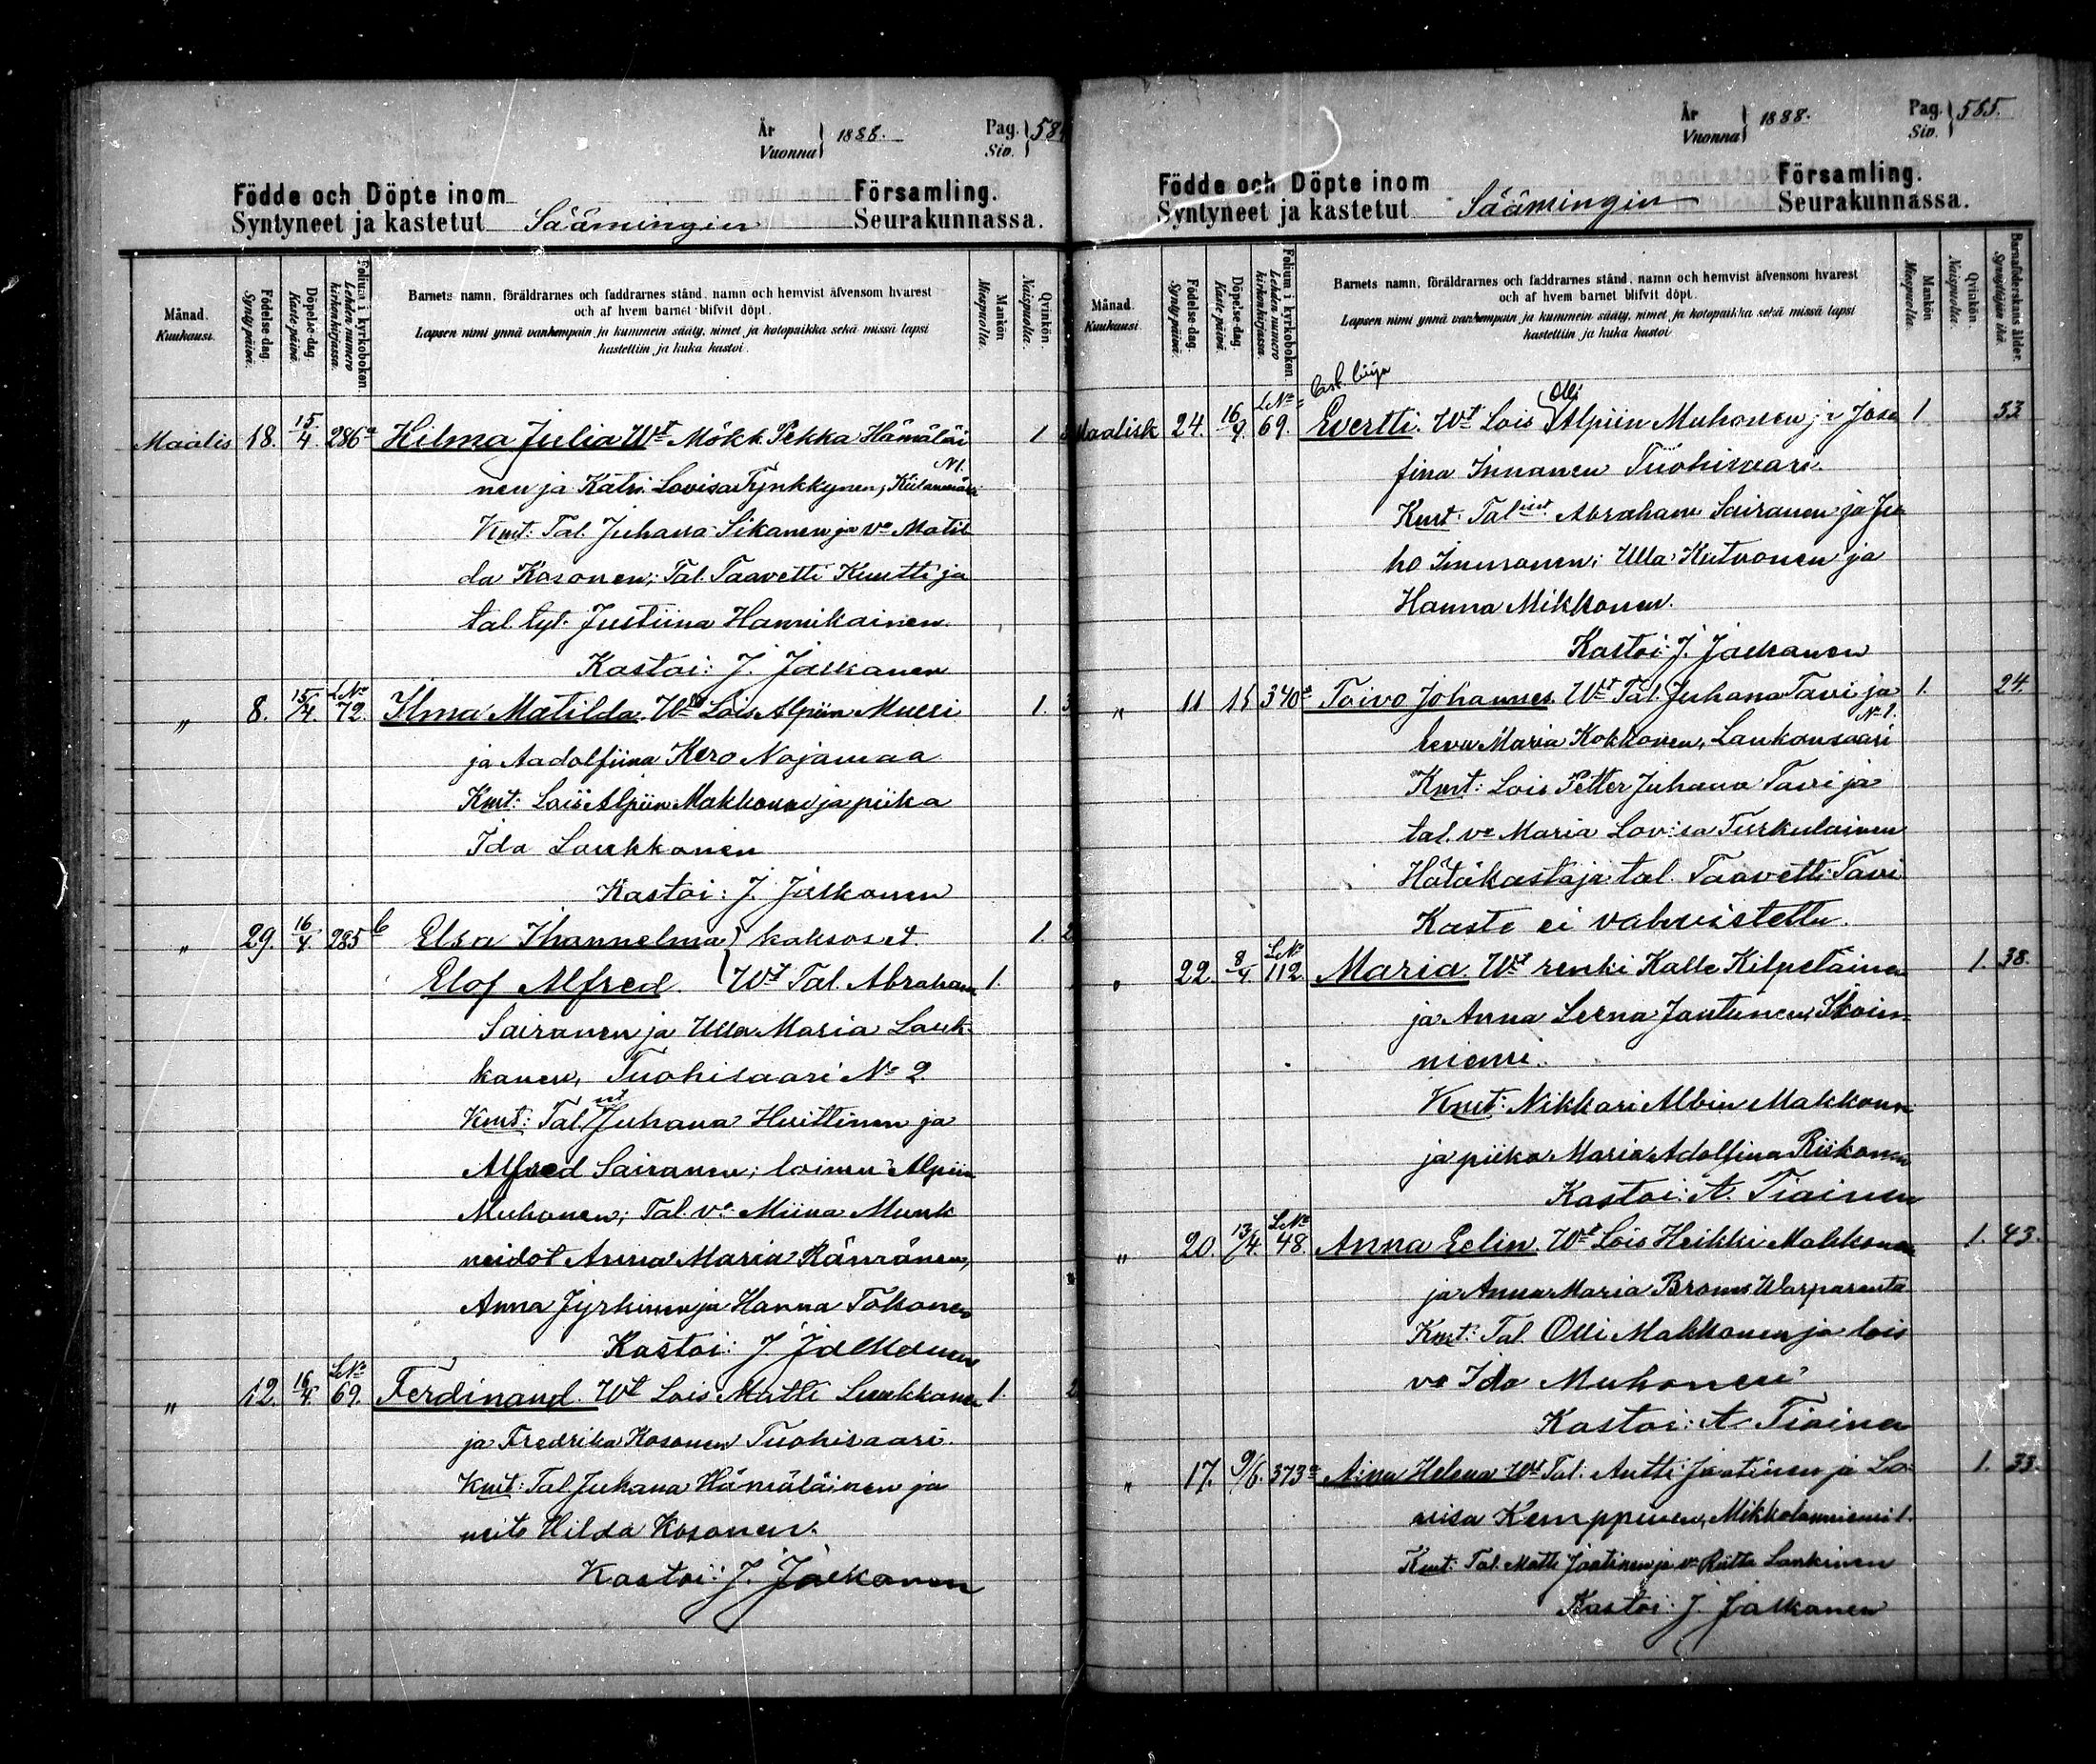 År
Vuonna } 1888.
Pag.
Siv. } 584
Födde och Döpte inom Församling.
Syntyneet ja kastetut Säämingin Seurakunnassa.
Månad.
Kuukausi.
Födelse-dag.
Syntypäivä.
Döpelse-dag.
Kastepäivä.
Folium i kyrkoboken.
Lehden numero kirkonkirjassa.
Barnets namn, föräldrarnes och faddrarnes stånd, namn och hemvist äfvensom hvarest
och af hvem barnet blifvit döpt.
Lapsen nimi ynnä vanhempain ja kummein sääty, nimet ja kotopaikka sekä missä lapsi
kastettiin ja kuka kastoi.
Mankön
Miespuolia.
Qvinkön.
Naispuolia.
Maalis 18. 15/4. 286a Hilma Julia Wt Mökk. Pekka Hämäläi 1
nen ja Katri Lovisa Tynkkynen, N1.
Kmt: Tal. Juhana Sikanen ja vo Matil
da Kosonen; Tal. Taavetti Kuutti ja
tal. tyt. Justiina Hannikainen.
Kastoi: J. Jalkanen
„ 8. 15/4. LNo 72. Ilma Matilda. Wt Lois Alpiin Muuri 1.
ja Aadolfiina Kero Nojamaa
Kmt: Lois Alpiin Makkonen ja piika
Ida Laukkonen
Kastoi: J. Jalkanen
„ 29. 16/4 285b Elsa Ihannelma } kaksoset. 1.
Elof Alfred. } Wt Tal. Abraham 1.
Sairanen ja Ulla Maria Lauk-
kanen, Tuohisaari No 2.
Kmt: Talset Juhana Huittinen ja
Alfred Sairanen; loinen Alpiin
Muhonen; Tal. vo Miina Munk
neidot Anna Maria Rämänen,
Anna Jyrkinen ja Hanna Tokonen
Kastoi: J Jalkanen
„ 12. 16/4. LNo 69. Ferdinand. Wt Lois Matti Luukkanen 1.
ja Fredrika Kosonen Tuohisaari.
Kmt: Tal Juhana Hämäläinen ja
neito Hilda Kosonen.
Kastoi: J. Jalkanen
År
Vuonna } 1888.
Pag.
Siv. } 585.
Födde och Döpte inom Församling.
Syntyneet ja kastetut Säämingin Seurakunnassa.
Månad.
Kuukausi.
Födelse-dag.
Syntypäivä.
Döpelse-dag.
Kastepäivä.
Folium i kyrkoboken.
Lehden numero kirkonkirjassa.
Barnets namn, föräldrarnes och faddrarnes stånd, namn och hemvist äfvensom hvarest
och af hvem barnet blifvit döpt.
Lapsen nimi ynnä vanhempain ja kummein sääty, nimet ja kotopaikka sekä missä lapsi
kastettiin ja kuka kastoi.
Mankön
Miespuolia.
Qvinkön.
Naispuolia.
Barnaföderskans ålder.
Synnyttäjän ikä.
Maalisk 24. 16/4. LNo 69. Evertti. Wt Lois Olli Alpiin Muhonen ja Jose 1. 53
fina Innanen Tuohisaari.
Kmt. Talset Abraham Sairanen ja Ju
ho Immonen; Ulla Kutvonen ja
Hanna Mikkonen.
Kastoi: J. Jalkanen
„ 11 15 340a Toivo Johannes. Wt Tal. Juhana Tavi ja 1. 24.
Eeva Maria Kokkonen, Laukansaari No 1.
Kmt: Lois Petter Juhana Tavi ja
tal. vo Maria Lovisa Turkulainen
Hätäkastaja tal. Taavetti Tavi
Kaste ei vahvistettu.
22. 8/4. LNo 112. Maria. Wt renki Kalle Kilpeläinen 1. 38.
ja Anna Leena Jantunen, Ikoin-
niemi.
Kmt: Nikkari Albin Makkonen
ja piika Maria Adolfina Riikonen
Kastoi: A. Tiainen
„ 20. 13/4 LNo 48. Anna Eelin. Wt Lois Heikki Makkonen 1. 43.
ja Anna Maria Broms Warparanta
Kmt: Tal. Olli Makkonen ja lois
vo Ida Muhonen
Kastoi: A. Tiainen
„ 17. 9/6. 373a Aina Helena Wt Tal. Antti Jaatinen ja Lo- 1. 33.
visa Kemppinen, Mikkolanniemi 1.
Kmt: Tal. Matti Jaatinen ja vo Riitta Lankinen
Kastoi: J. Jalkanen